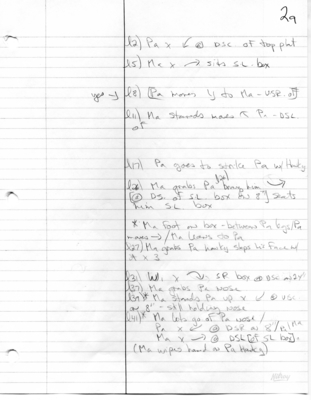 2a
l2) Pa x ↙ @ DSC of top plat
l5) Ma x → sits SL box
yes → l8) Pa moves to Ma - USR of
l11) Ma stands moves ↖ Pa - DSC
of
l17) Pa goes to strike Pa w/ Hanky
Ma grabs Pa bring him
@ DS. of SL box on 8" seats
him SL box
* Ma Foot on box - between Pa legs/Pa
moves → / Ma leans to Pa
l27) Ma grabs Pa hanky slaps his Face w/
it x 3
l31) W. x SR box @ DSC on 2x'
l37) Ma grabs Pa nose
l39)* Ma stands Pa up x ↙ @ USC
on 8" - still holding nose
l41)* Ma lets go of Pa nose /
Pa x ↙ @ DSR on 8'/Bl Ma
Ma x → @ DSL [of SL box].
(Ma wipes hand on Pa Hanky)
Hilroy